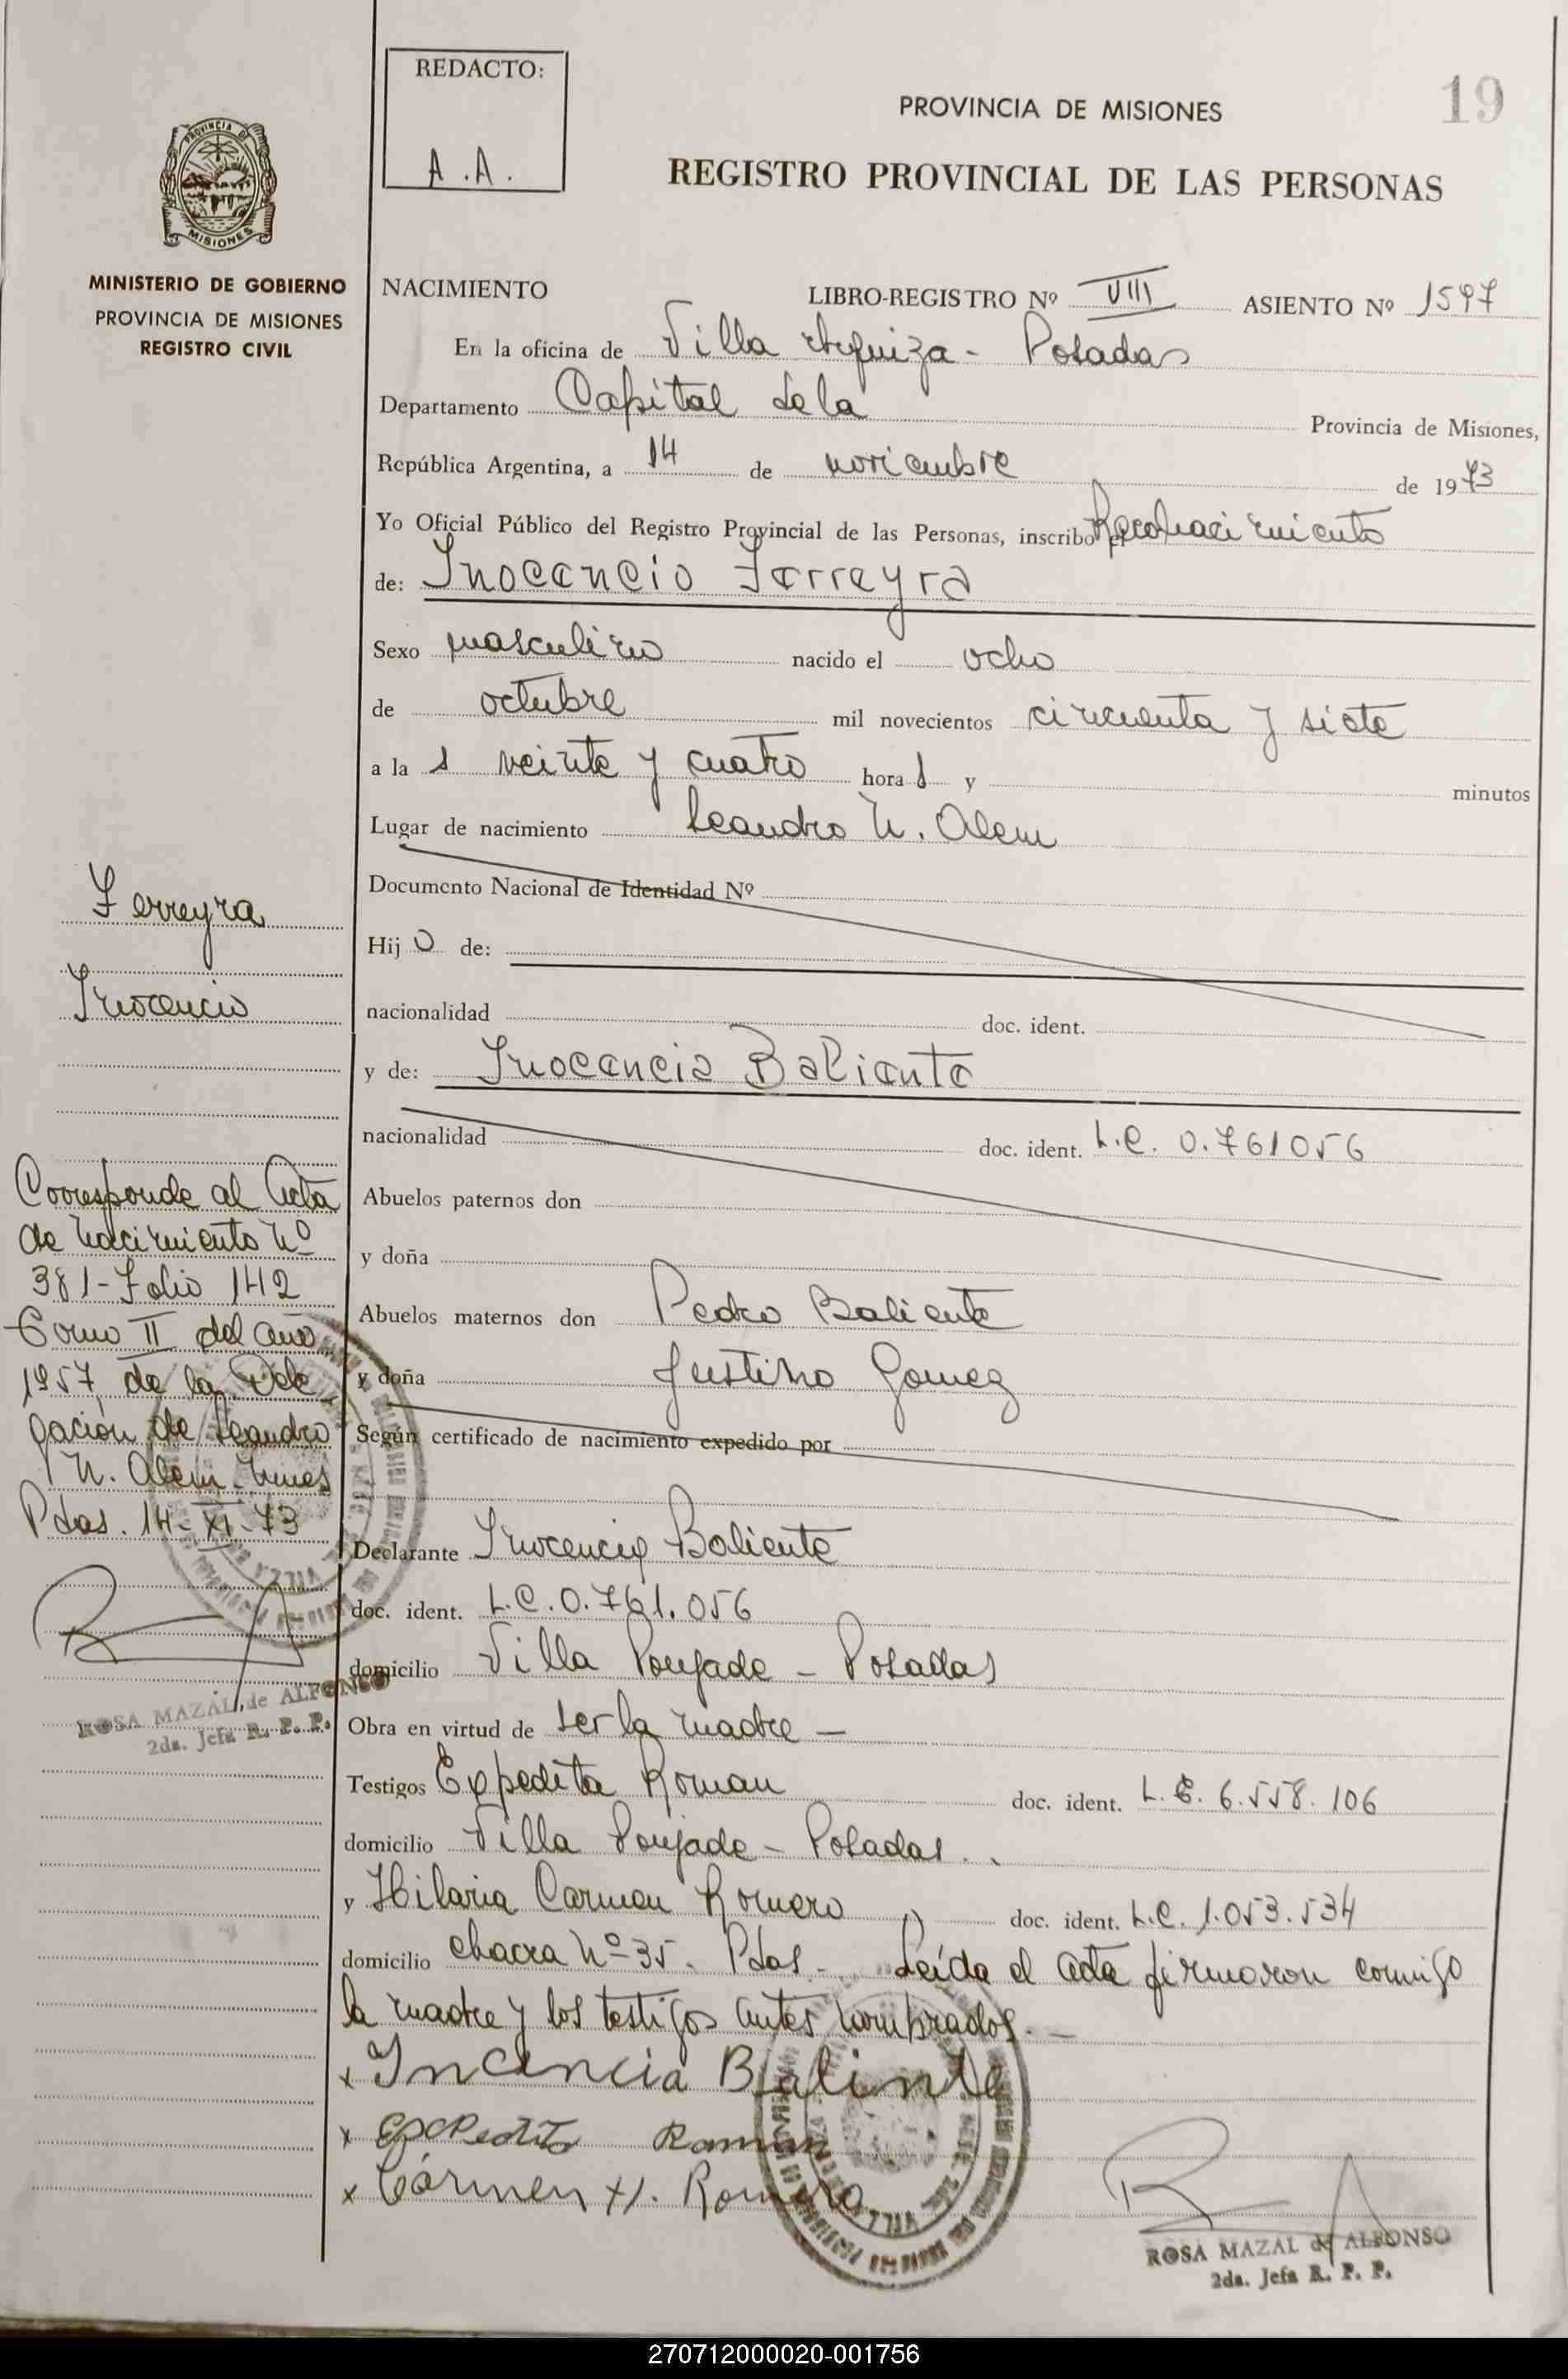 REDACTO:
A.A.
19
PROVINCIA DE MISIONES
REGISTRO PROVINCIAL DE LAS PERSONAS
MINISTERIO DE GOBIERNO
PROVINCIA DE MISIONES
REGISTRO CIVIL
NACIMIENTO LIBRO-REGISTRO Nº VIII ASIENTO Nº 1597
En la oficina de Villa Urquiza - Posadas
Departamento Capital de la Provincia de Misiones,
República Argentina, a 14 de noviembre de 1973
Yo Oficial Público del Registro Provincial de las Personas, inscribo el Reconocimiento
de: Inocencio Ferreyra
Sexo masculino nacido el ocho
de octubre mil novecientos cincuenta y siete
a la s veinte y cuatro hora s y minutos
Lugar de nacimiento Leandro N. Alem
Documento Nacional de Identidad Nº
Hij o de:
nacionalidad doc. ident.
y de: Inocencia Baliente
nacionalidad doc. ident. L.C. 0.761056
Abuelos paternos don
y doña
Abuelos maternos don Pedro Baliente
y doña Justina Gomez
Según certificado de nacimiento expedido por
Declarante Inocencia Baliente
doc. ident. L.C. 0.761.056
domicilio Villa Poujade - Posadas
Obra en virtud de ser la madre -
Testigos Expedito Roman doc. ident. L.E. 6.558.106
domicilio Villa Poujade - Posadas.
y Hilaria Carmen Romero doc. ident. L.C. 1.053.534
domicilio chacra Nº 35. Pdas. Leída el acta firmaron conmigo
la madre y los testigos antes nombrados. -
x Incencia Balinte
x Expedito Roman
x Cármen H. Romero
ROSA MAZAL de ALFONSO
2da. Jefa R. P. P.
Ferreyra
Inocencio
Corresponde al Acta
de nacimiento Nº
381 - Folio 142
Tomo II del año
1957 de la Dele
gación de Leandro
N. Alem
Pdas. 14-XI-73
ROSA MAZAL de ALFONSO
2da. Jefa R. P. P.
270712000020-001756